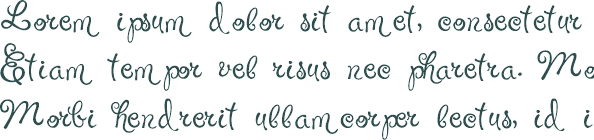 Lorem ipsum dolor sit amet, consectetur
Etiam tempor vel risus nec pharetra. Mo
Morbi hendrerit ullamcorper lectus, id i